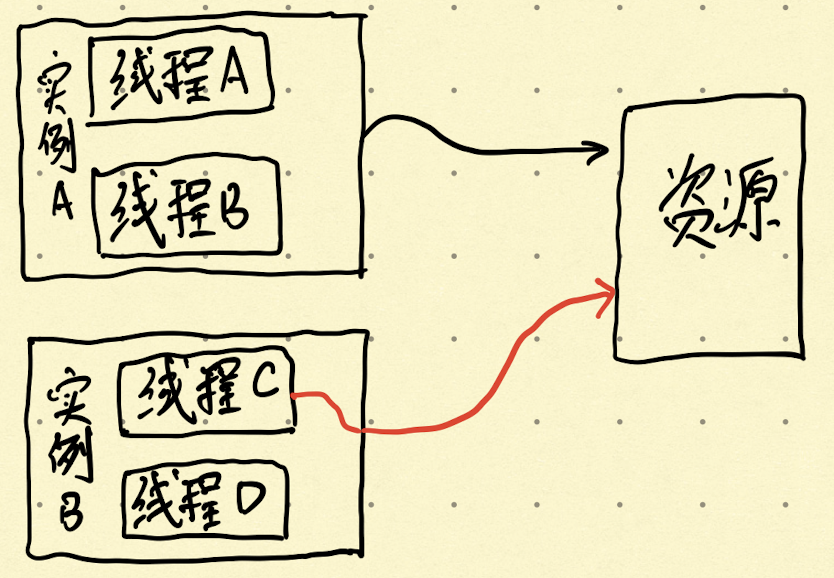 实例A
线程A
线程B
资源
实例B
线程C
线程D